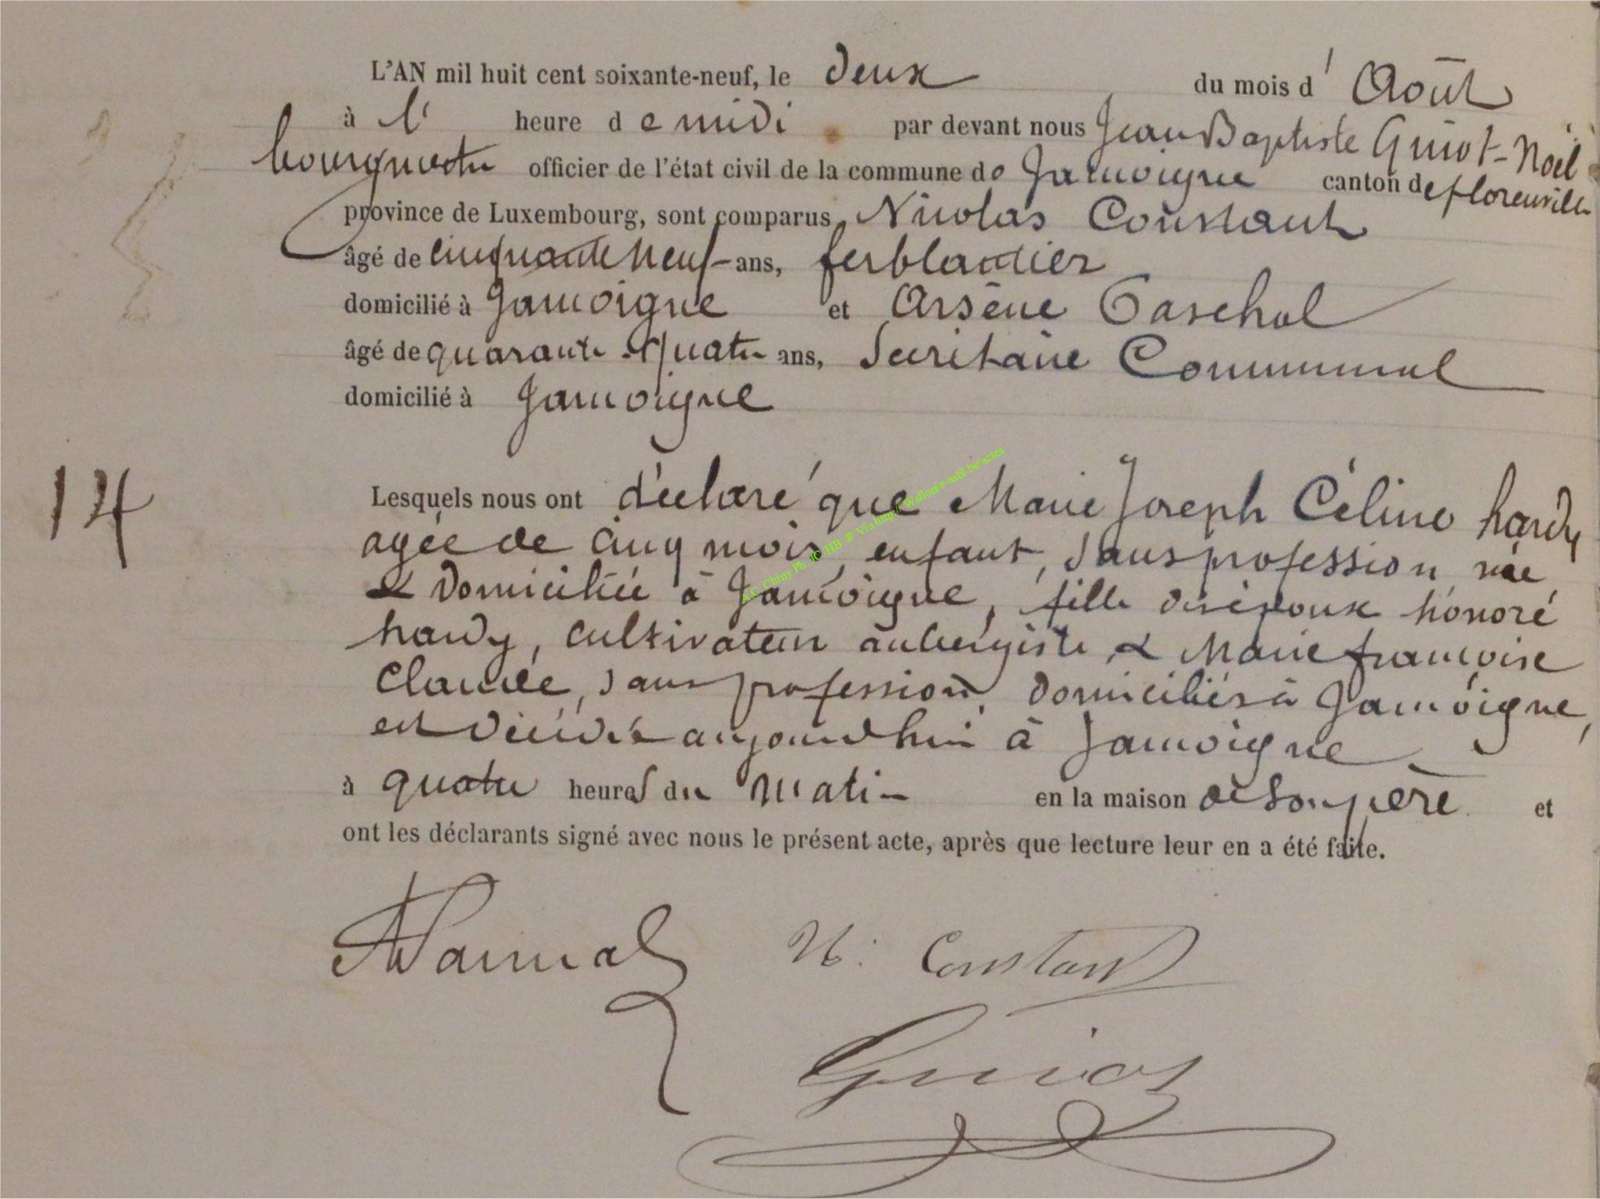 L'AN mil huit cent soixante-neuf, le deux du mois d' Août
à l' heure de midi par devant nous Jean Baptiste Guiot-Noël
bourgmestre officier de l'état civil de la commune de Jamoigne canton de florenville
province de Luxembourg, sont comparus Nicolas Constant
âgé de cinquante neuf ans, ferblantier
domicilié à Jamoigne et Arsène Paschal
âgé de quarante-quatre ans, Secrétaire Communal
domicilié à Jamoigne
14
Lesquels nous ont déclaré que Marie Joseph Céline hardy
agée de cinq mois, enfant, sans profession, née
& domiciliée à Jamoigne, fille des époux honoré
hardy, cultivateur aubergiste & Marie françoise
Claude, sans profession, domiciliés à Jamoigne,
est décédée aujourd'hui à Jamoigne
à quatre heures du matin en la maison de son père et
ont les déclarants signé avec nous le présent acte, après que lecture leur en a été faite.
N. Constant
Guiot